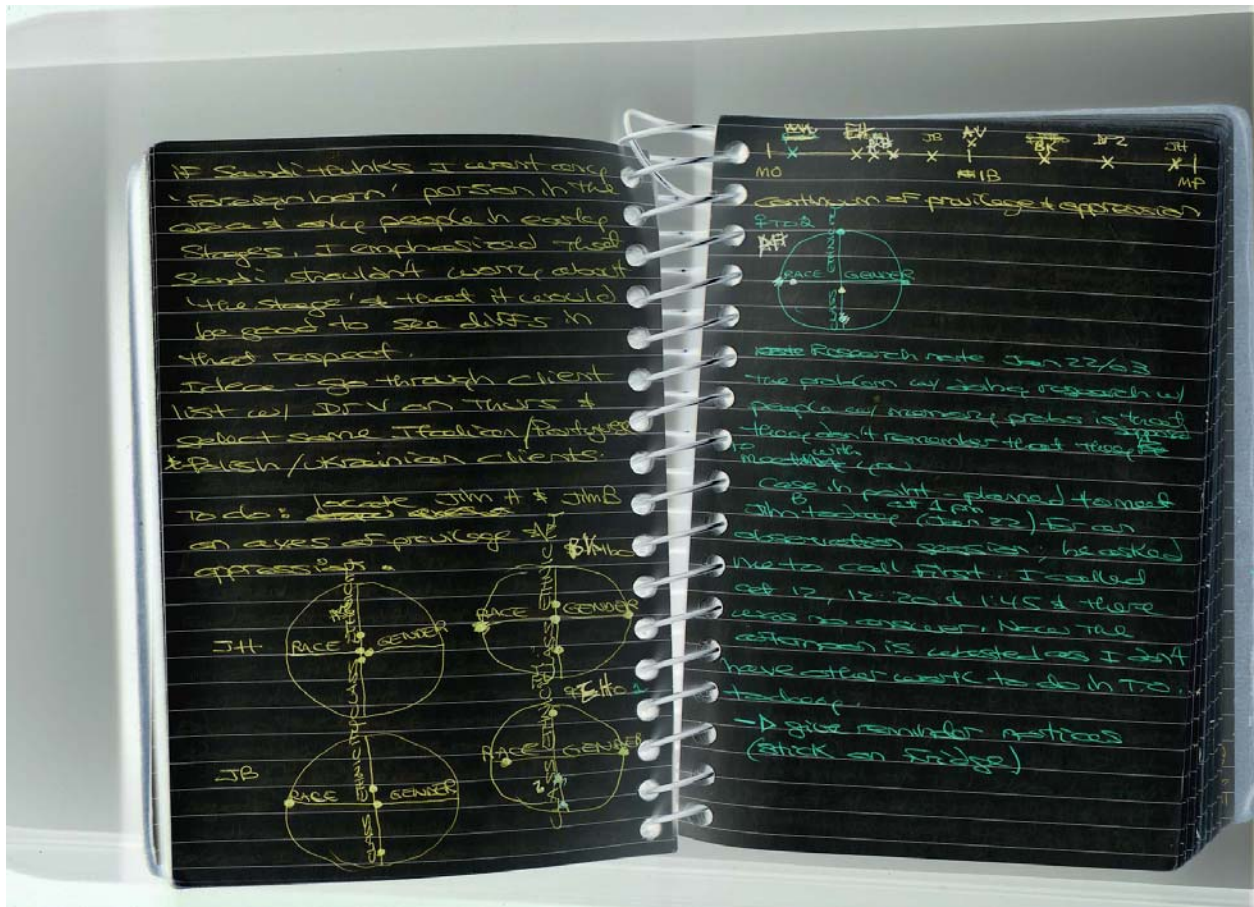 if Sandi thinks I want only
'foreign born' person in the
area & only people in early
stages. I emphasized that
Sandi shouldn't worry about
'the stage' & that it would
be good to see diffs in
that respect.
Idea - go through client
list w/ DFV on Thurs &
select some Italian/Portugese
& Polish/Ukrainian clients.
To do: locate Jim H & Jim B
on axes of privilege &
oppression.
BK
RACE GENDER
CLASS ETHNICITY
JH
RACE GENDER
CLASS ETHNICITY
EH
RACE GENDER
CLASS ETHNICITY
JB
RACE GENDER
CLASS ETHNICITY
JB AV BK DFZ JH
MO IB MP
continuum of privilege & oppression
RACE GENDER
CLASS ETHNICITY
Research note Jan 22/03
The problem w/ doing research w/
people w/ memory probs is that
they don't remember that they
with you
case in point - planned to meet
Jim B today (Jan 22) at 1 pm for an
observation session; he asked
me to call first. I called
at 12, 12:20 & 1:45 & there
was no answer. Now the
afternoon is wasted as I don't
have other work to do in T.O.
today.
→ give reminder notices
(stick on fridge)